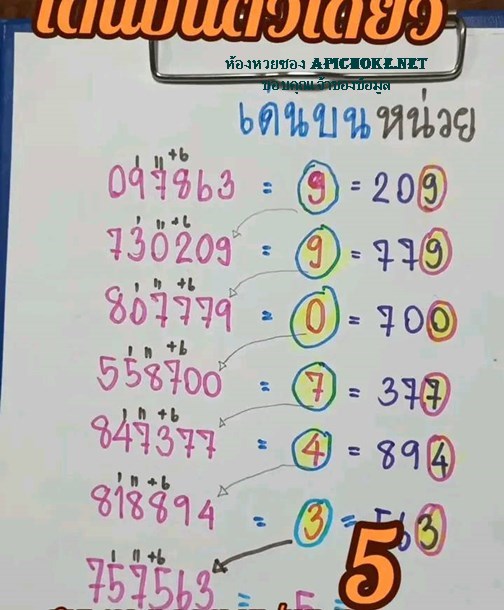 เด่นบนตัวเดียว
ห้องหวยซอง APICHOKE.NET
ขอบคุณเจ้าของข้อมูล
เดนบนหน่วย
ı ıı +6
097863 = 9 = 209
ı ıı +6
730209 = 9 = 779
ı ıı +6
807779 = 0 = 700
ı ıı +6
558700 = 7 = 377
ı ıı +6
847377 = 4 = 894
ı ıı +6
818894 = 3 = 563
ı ıı +6
757563 = 5